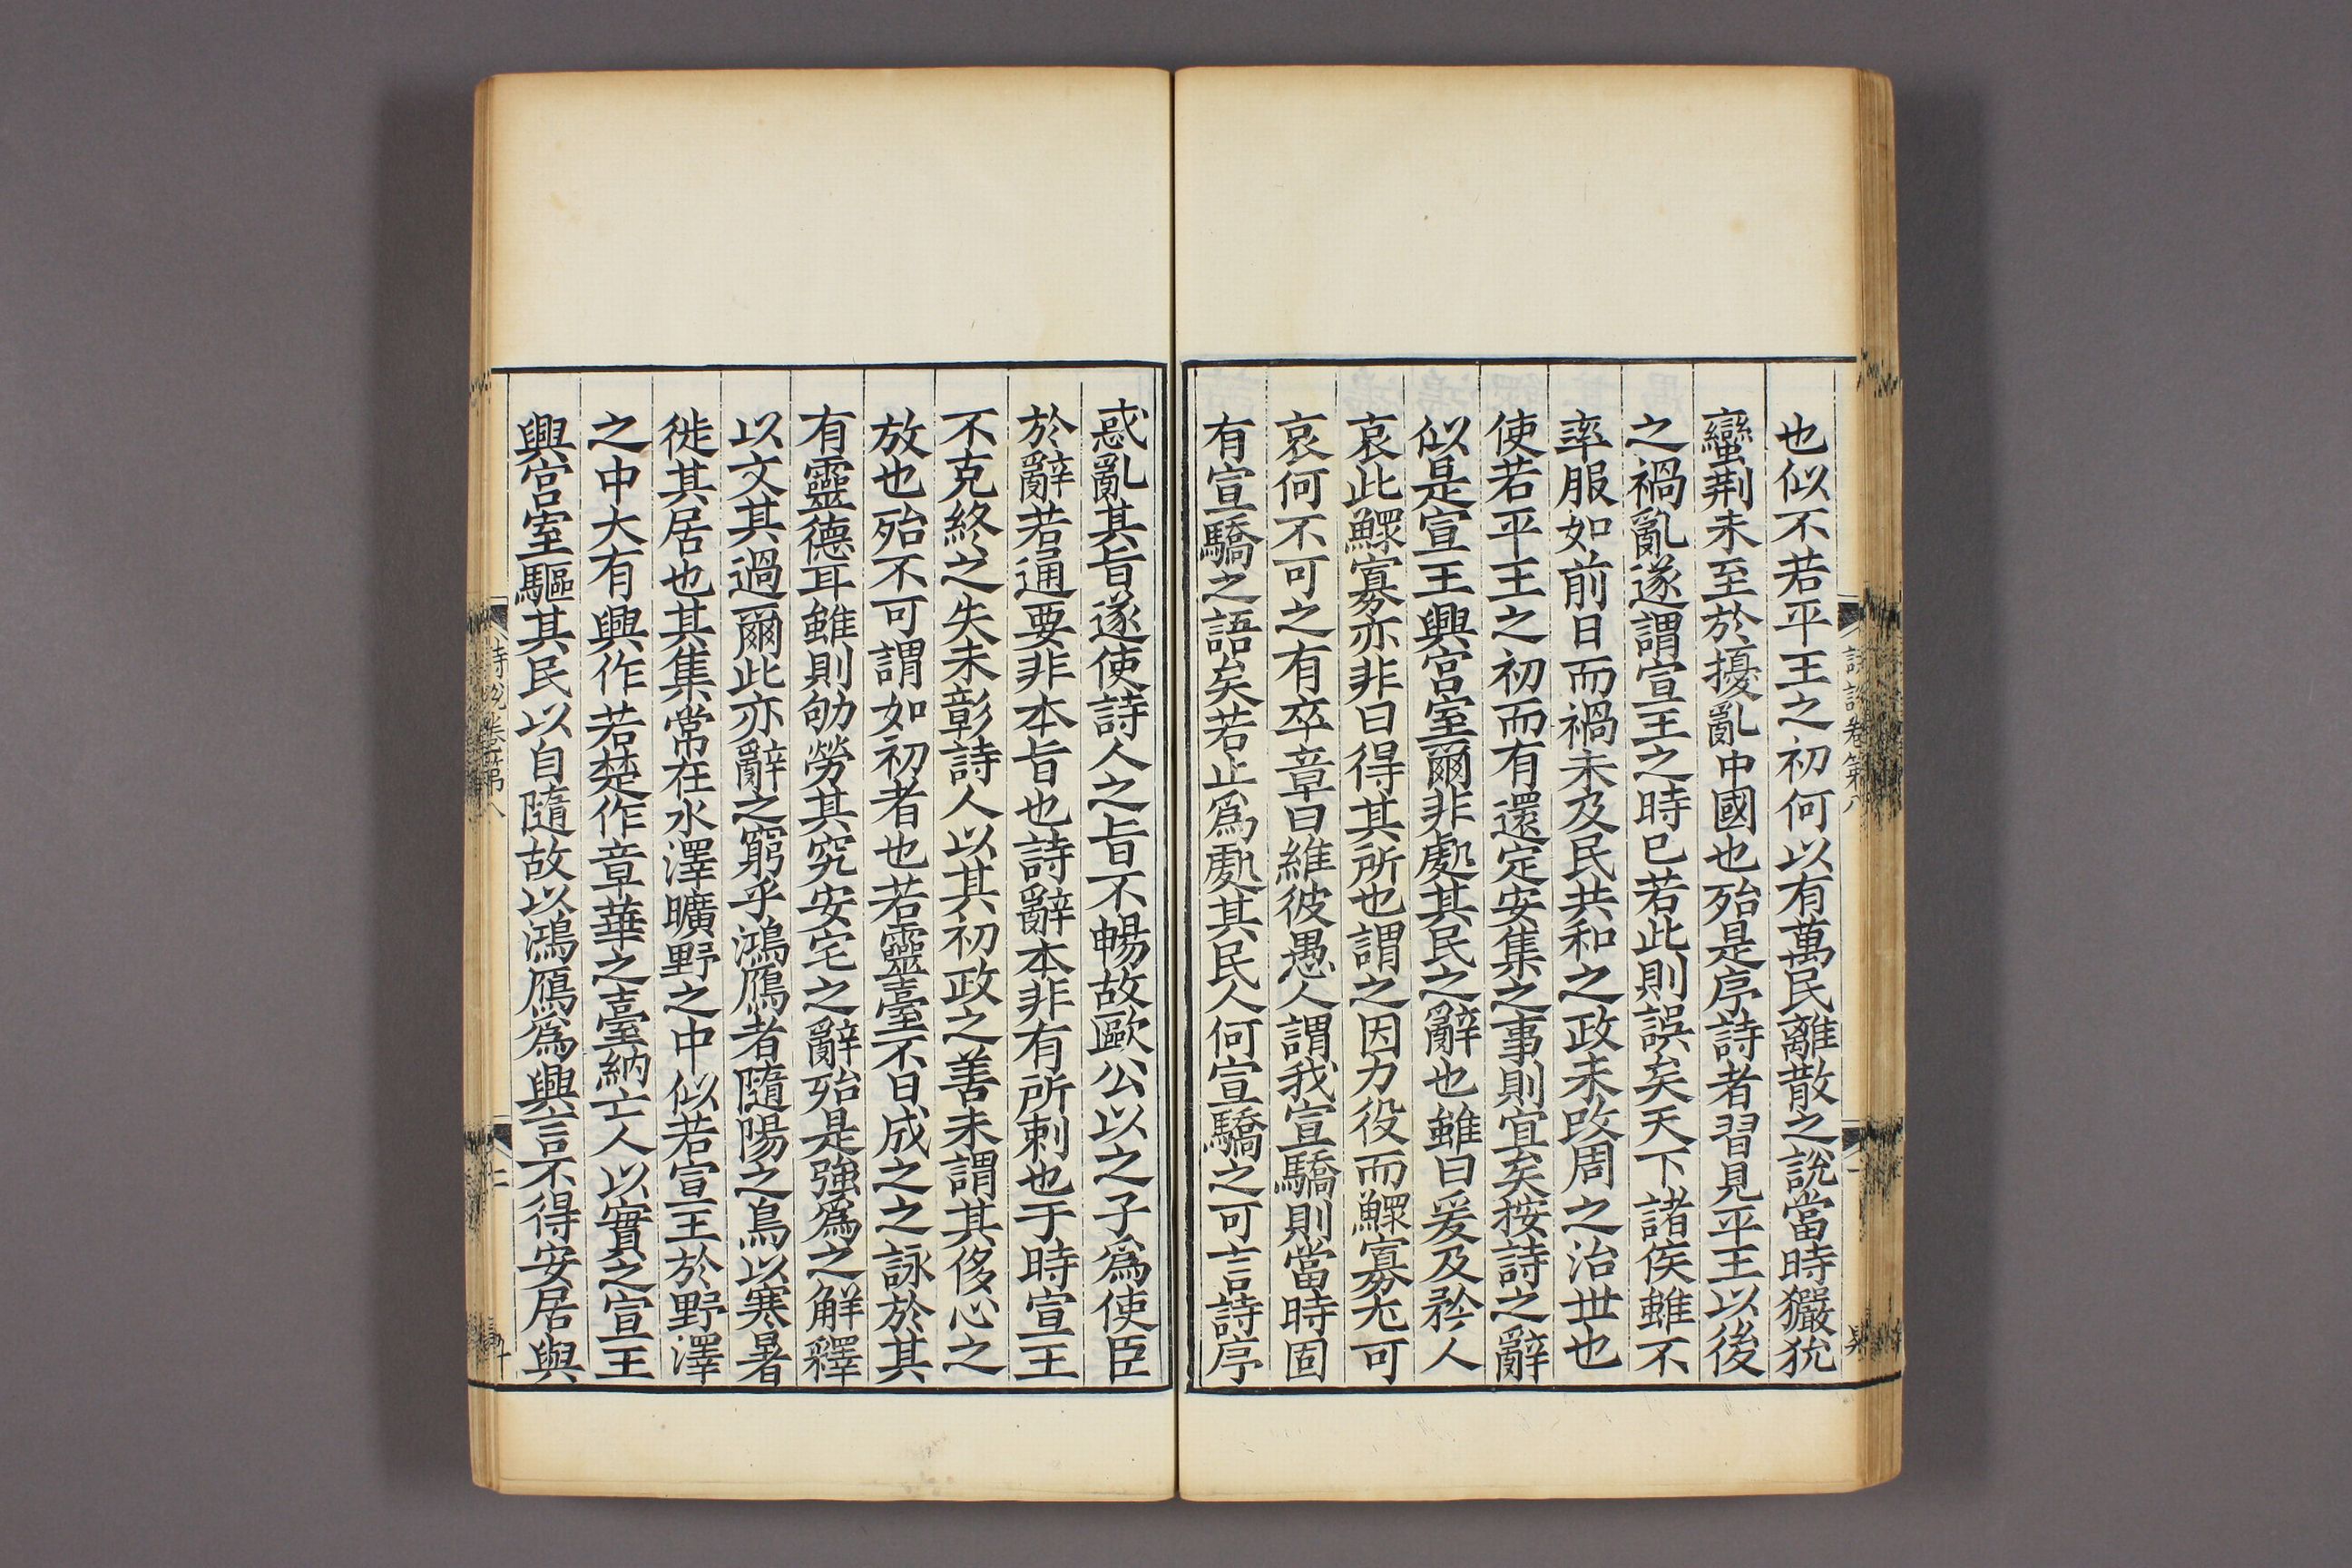 也似不若平王之初何以有萬民離散之說當時玁狁
蠻荆未至於擾亂中國也殆是序詩者習見平王以後
之禍亂遂謂宣王之時已若此則誤矣天下諸侯雖不
率服如前日而禍未及民共和之政未改周之治世也
使若平王之初而有還定安集之事則宜矣按詩之辭
似是宣王興宮室爾非處其民之辭也雖曰爰及矜人
哀此鰥寡亦非曰得其所也謂之因力役而鰥寡尤可
哀何不可之有卒章曰維彼愚人謂我宣驕則當時固
有宣驕之語矣若止爲處其民人何宣驕之可言詩序
惑亂其旨遂使詩人之旨不暢故歐公以之子爲使臣
於辭若通要非本旨也詩辭本非有所刺也于時宣王
不克終之失未彰詩人以其初政之善未謂其侈心之
放也殆不可謂如初者也若靈臺不日成之之詠於其
有靈德耳雖則劬勞其究安宅之辭殆是強爲之解釋
以文其過爾此亦辭之窮乎鴻鴈者隨陽之鳥以寒暑
徙其居也其集常在水澤曠野之中似若宣王於野澤
之中大有興作若楚作章華之臺納亡人以實之宣王
興宮室驅其民以自隨故以鴻鴈爲興言不得安居與
詩說卷第八
詩說卷第八
二